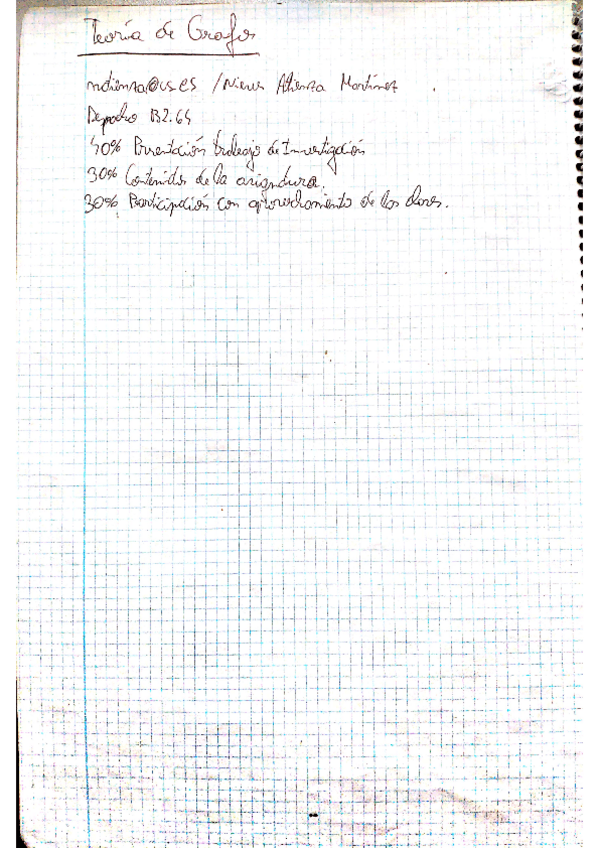 Teoría de Grafos
natienza@us.es / Nieves Atienza Martínez
Despacho B2.64
40% Presentación trabajo de Investigación
30% Contenidos de la asignatura.
30% Participación con aprovechamiento de las clases.